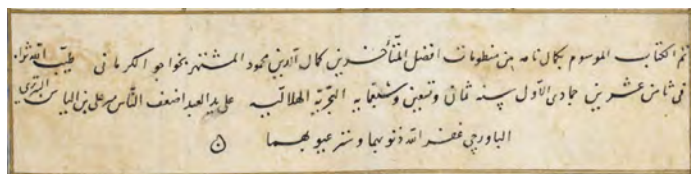 تم الكتاب الموسوم بكمال نامه من منظومات افضل المتأخرين كمال الدين محمود المشتهر بخواجو الكرمانی طيب الله ثراه
فی ثامن عشرين جمادی الاول سنه ثمان وتسعين وسبعمايه الهجريه الهلاليه علی يد العبد اضعف الناس مير علی بن الياس التبريزی
الباورچی غفر الله ذنوبهما وستر عيوبهما